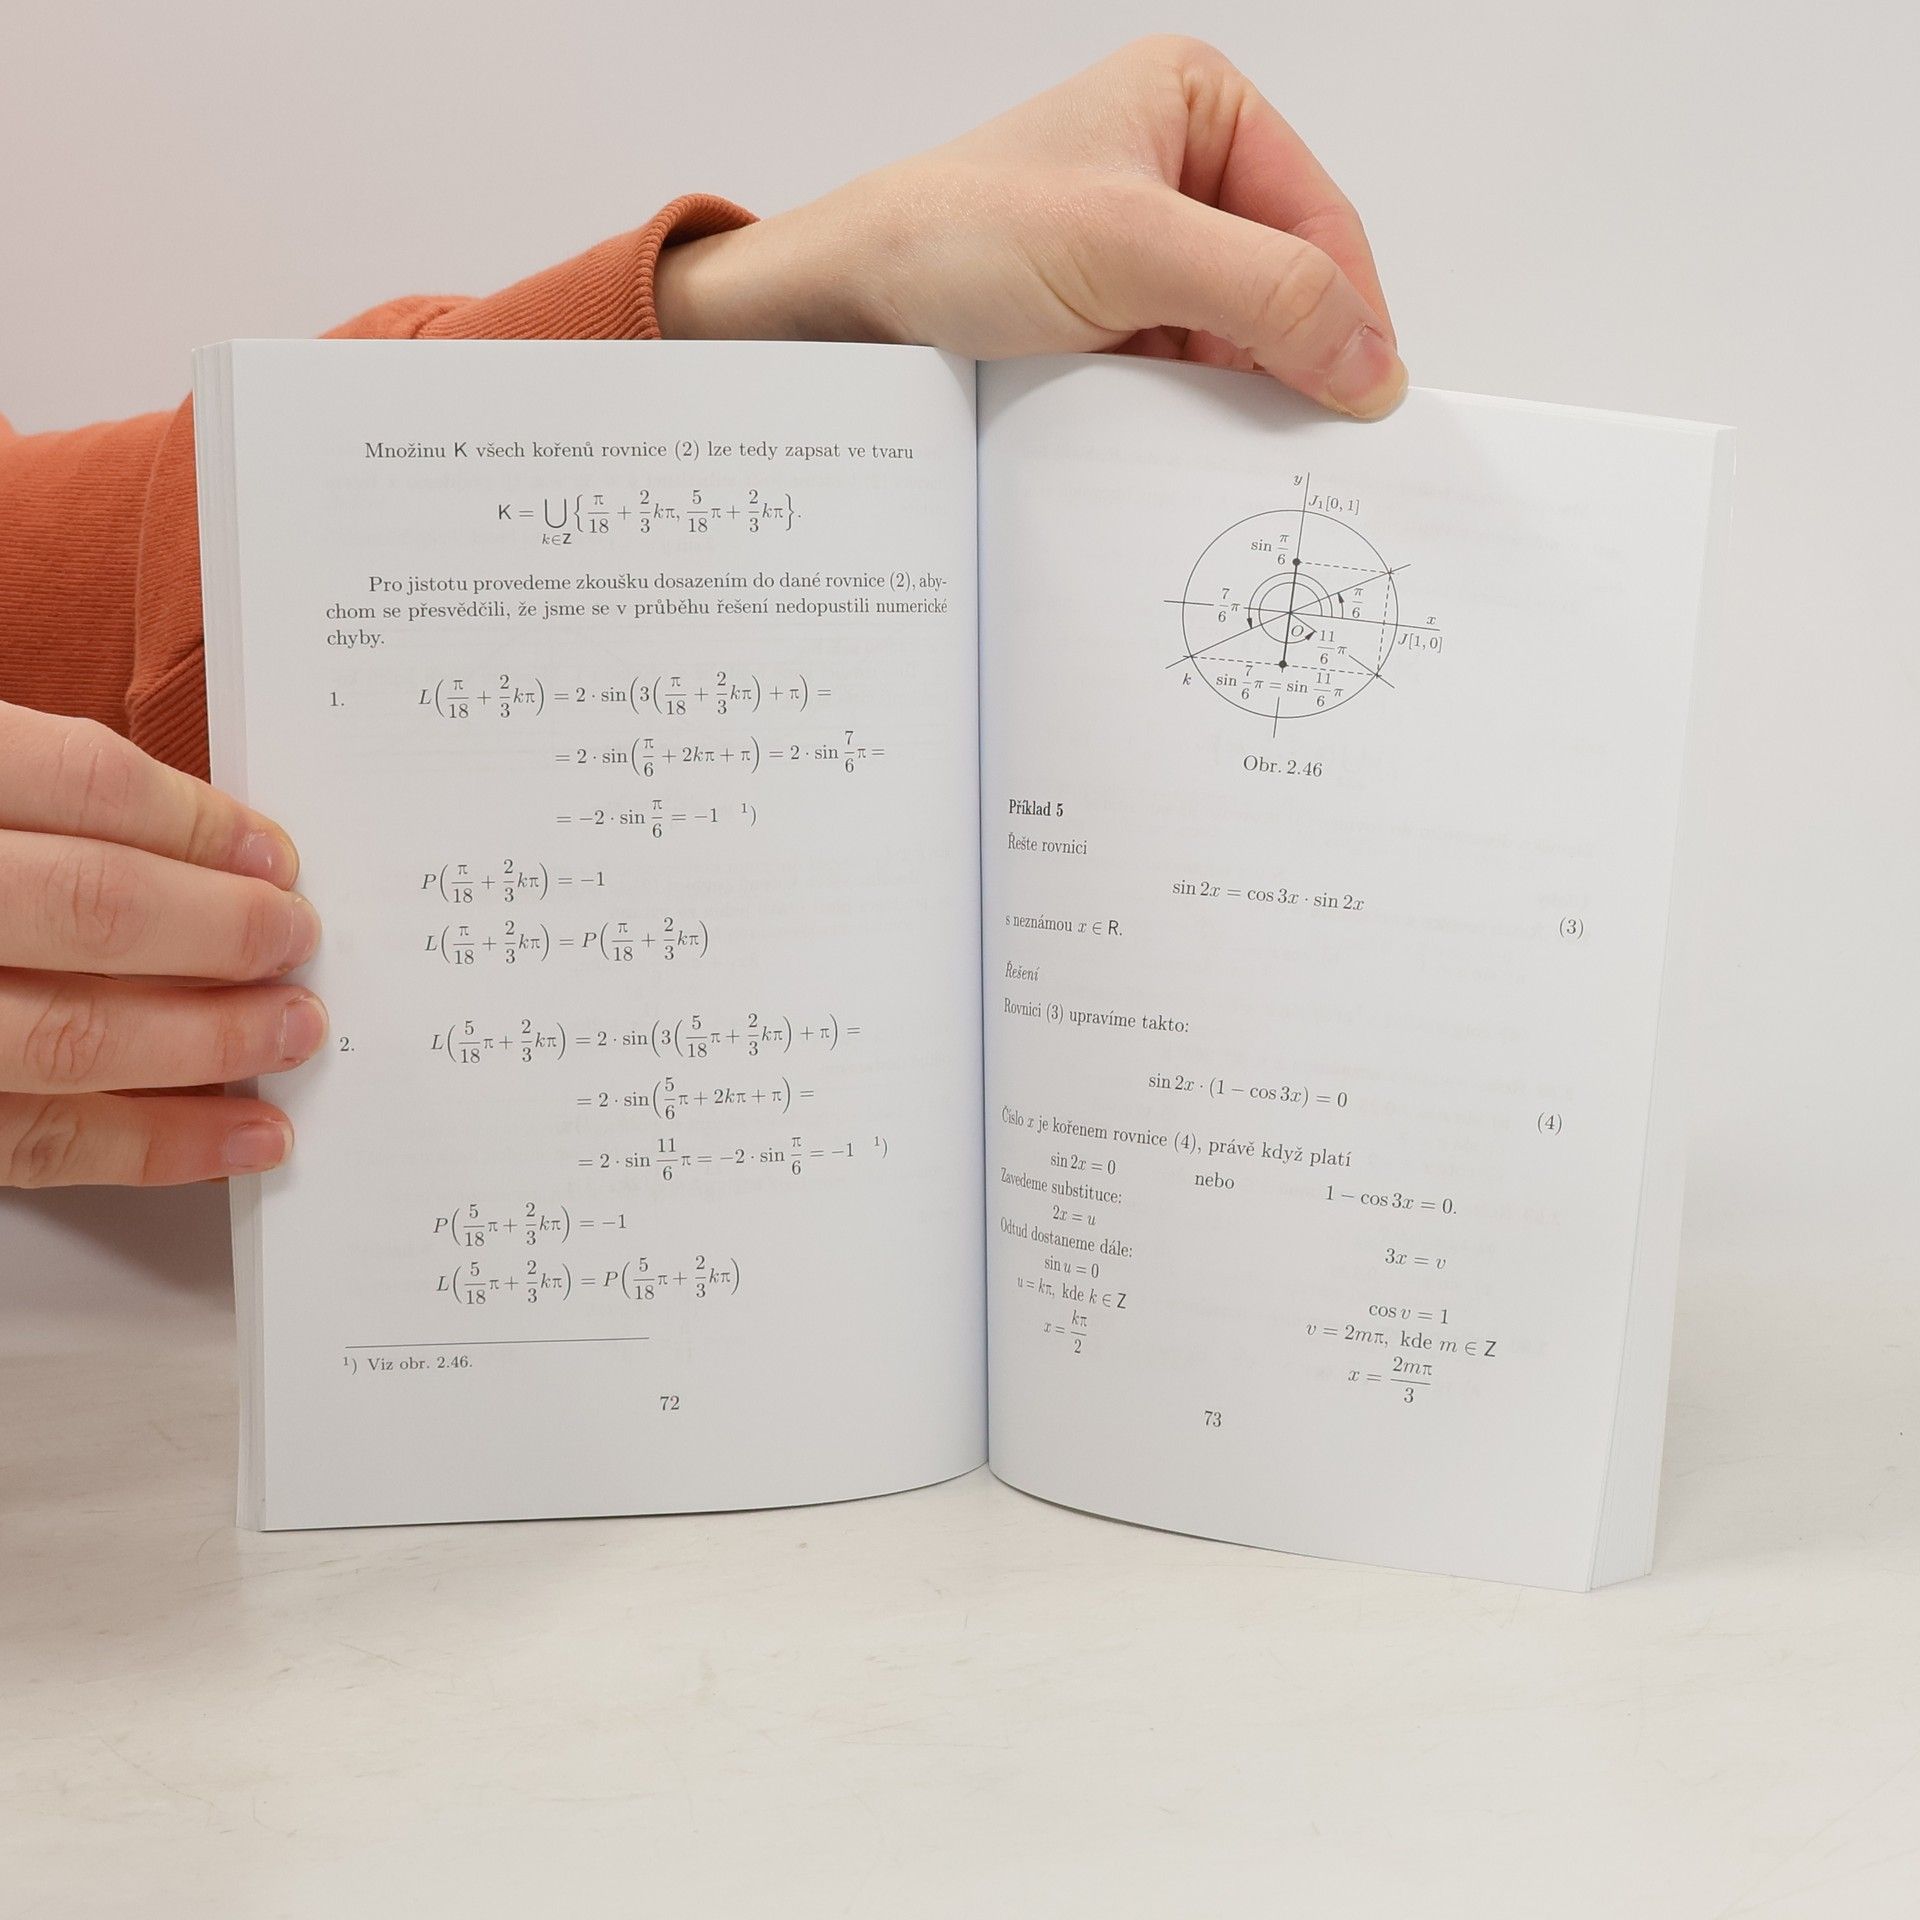 Množinu K všech kořenů rovnice (2) lze tedy zapsat ve tvaru
K = ⋃_{k∈Z} {π/18 + 2/3 kπ, 5/18 π + 2/3 kπ}.
Pro jistotu provedeme zkoušku dosazením do dané rovnice (2), aby-
chom se přesvědčili, že jsme se v průběhu řešení nedopustili numerické
chyby.
1. L(π/18 + 2/3 kπ) = 2 · sin(3(π/18 + 2/3 kπ) + π) =
= 2 · sin(π/6 + 2kπ + π) = 2 · sin 7/6 π =
= −2 · sin π/6 = −1 ¹)
P(π/18 + 2/3 kπ) = −1
L(π/18 + 2/3 kπ) = P(π/18 + 2/3 kπ)
2. L(5/18 π + 2/3 kπ) = 2 · sin(3(5/18 π + 2/3 kπ) + π) =
= 2 · sin(5/6 π + 2kπ + π) =
= 2 · sin 11/6 π = −2 · sin π/6 = −1 ¹)
P(5/18 π + 2/3 kπ) = −1
L(5/18 π + 2/3 kπ) = P(5/18 π + 2/3 kπ)
¹) Viz obr. 2.46.
72
y
J₁[0, 1]
sin π/6
7/6 π
π/6
x
O
11/6 π
J[1, 0]
k
sin 7/6 π = sin 11/6 π
Obr. 2.46
Příklad 5
Řešte rovnici
sin 2x = cos 3x · sin 2x
(3)
s neznámou x ∈ R.
Řešení
Rovnici (3) upravíme takto:
sin 2x · (1 − cos 3x) = 0
(4)
Číslo x je kořenem rovnice (4), právě když platí
sin 2x = 0 nebo 1 − cos 3x = 0.
Zavedeme substituce:
2x = u 3x = v
Odtud dostaneme dále:
sin u = 0 cos v = 1
u = kπ, kde k ∈ Z v = 2mπ, kde m ∈ Z
x = kπ/2 x = 2mπ/3
73